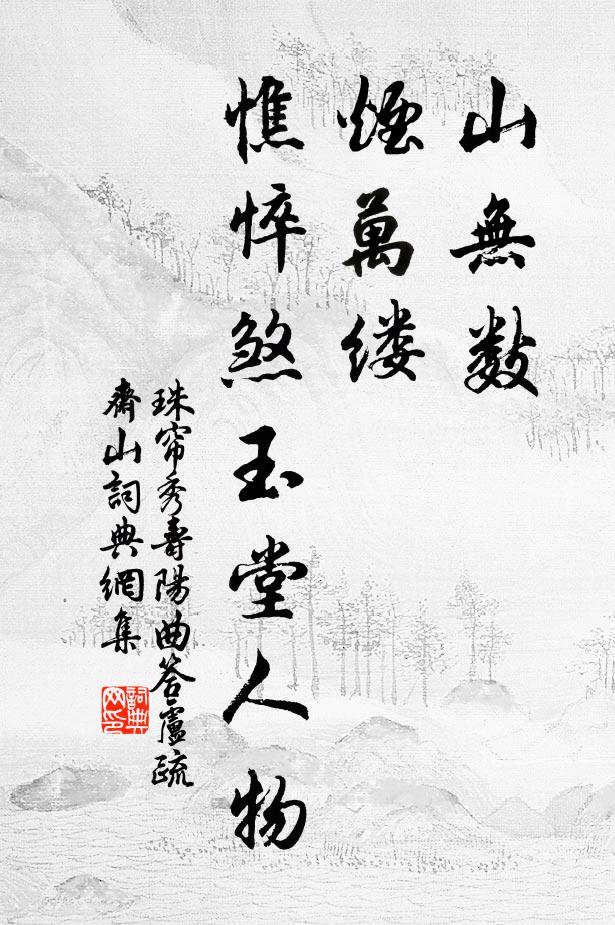 山無數
煙萬缕
憔悴煞玉堂人物
珠帘秀壽陽曲答盧疏
齋山詞典網集
詞典
网印